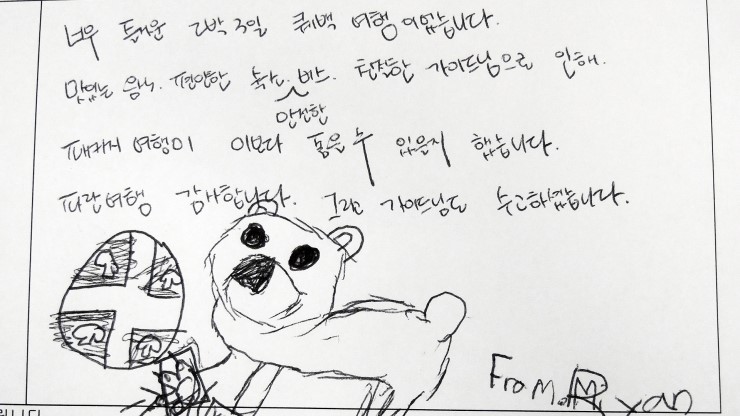 너무 즐거운 2박 3일 퀘백 여행이었습니다.
맛있는 음식, 편안한 숙소, 안전한 버스. 친절한 가이드님으로 인해.
패키지 여행이 이보다 좋은 수 있을지 했습니다.
파란여행 감사합니다. 그리고 가이드님도 수고하셨습니다.
From. Ryan